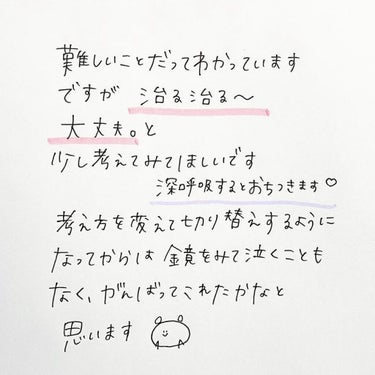 難しいことだってわかっています
ですが 治る治る〜
大丈夫。と
少し考えてみてほしいです
深呼吸するとおちつきます♡
考え方を変えて切り替えするように
なってからは 鏡をみて泣くことも
なく、がんばってこれたかなと
思います